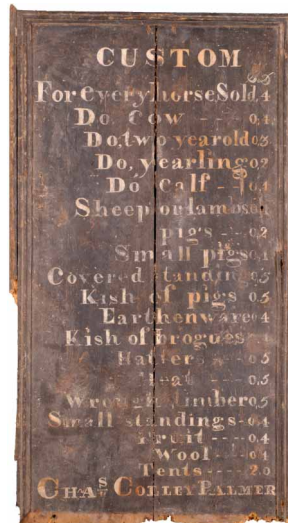 CUSTOM
For every horse Sold, 4
Do Cow ---- 0,4
Do, two year old 0,3
Do, yearling 0,2
Do Calf -- 0,1
Sheep or lambs
pigs -- 0,2
Small pigs 0,1
Covered standing 0,5
Kish of pigs 0,5
Earthenware 0,4
Kish of brogues
Hatters ---- 0,5
---- 0,5
Wrought timber 0,5
Small standings -- 0,4
Fruit --- 0,4
Wool -- 0,4
Tents ---- 2,0
CHAS COLLEY PALMER